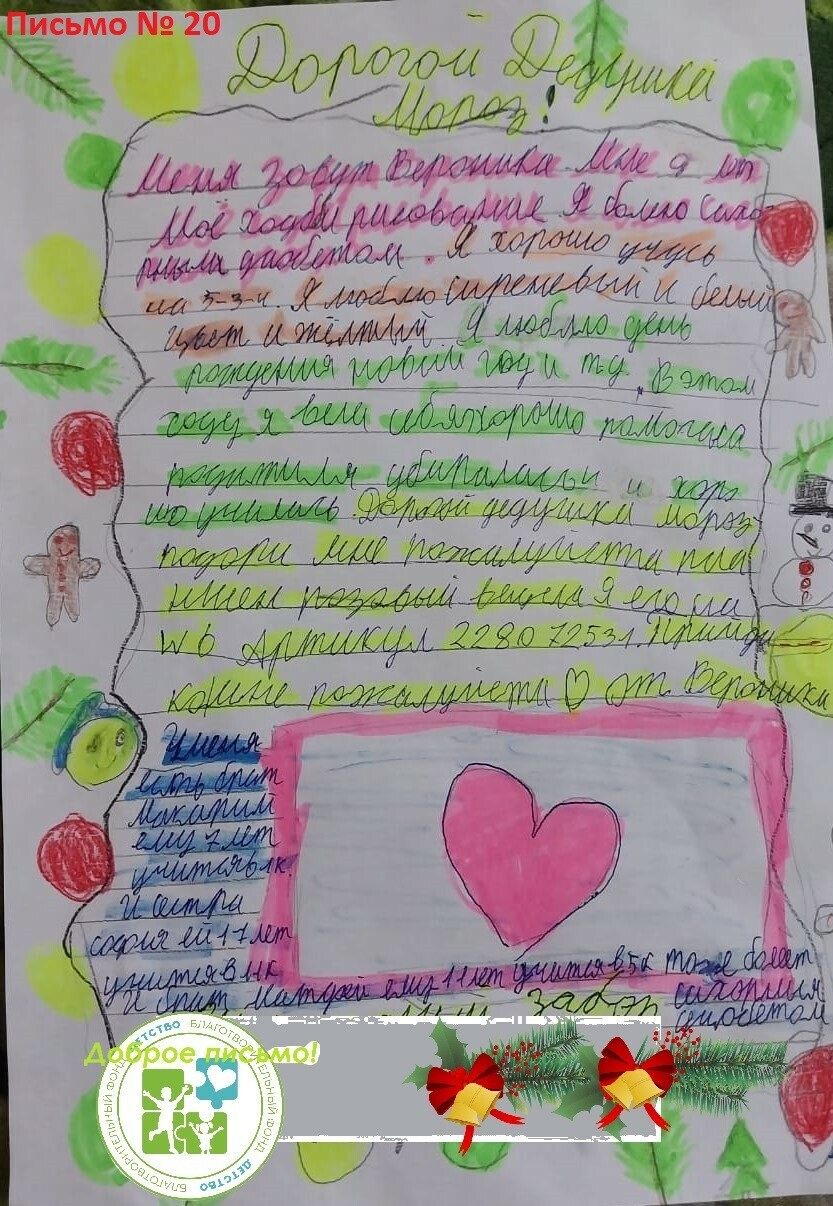 Письмо № 20
Дорогой Дедушка
Мороз!
Меня зовут Вероника. Мне 9 лет
Моё хобби рисование Я болею саха
рным диабетом. Я хорошо учусь
на 5-3-4. Я люблю сиреневый и белый
цвет и жёлтый. Я люблю день
рождения новый год и т.д. В этом
году я вела себя хорошо помогала
убиралась и хоро
шо училась Дорогой дедушка мороз
подари мне пожалуйста пла
розовый Я его на
WB Артикул 228072531. Приходи
ко мне пожалуйста от Вероники
У меня
есть брат
Макарий
ему 7 лет
учится
И сестра
София ей 17 лет
учится в 11к
И брат Матфей ему 11 лет учится в 5к тоже болеет
забор сахарным
диабетом
Доброе письмо!
БЛАГОТВОРИТЕЛЬНЫЙ ФОНД ДЕТСТВО БЛАГОТВОРИТЕЛЬНЫЙ ФОНД ДЕТСТВО